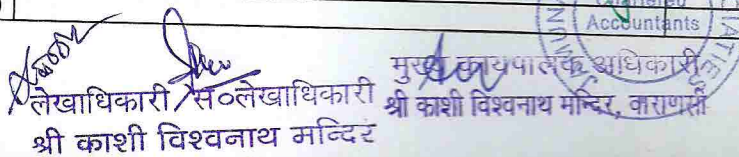 Chartered
Accountants
लेखाधिकारी/स०लेखाधिकारी
श्री काशी विश्वनाथ मन्दिर
मुख्य कार्यपालक अधिकारी
श्री काशी विश्वनाथ मन्दिर, वाराणसी